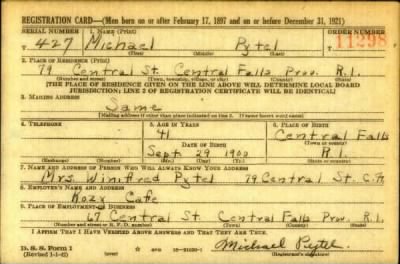 REGISTRATION CARD—(Men born on or after February 17, 1897 and on or before December 31, 1921)
SERIAL NUMBER 1. NAME (Print) ORDER NUMBER
T 427 Michael Pytel 11298
(First) (Middle) (Last)
2. PLACE OF RESIDENCE (Print)
79 Central St. Central Falls Prov. R.I.
(Number and street) (Town, township, village, or city) (County) (State)
[THE PLACE OF RESIDENCE GIVEN ON THE LINE ABOVE WILL DETERMINE LOCAL BOARD
JURISDICTION; LINE 2 OF REGISTRATION CERTIFICATE WILL BE IDENTICAL]
3. MAILING ADDRESS
Same
[Mailing address if other than place indicated on line 2. If same insert word same]
4. TELEPHONE 5. AGE IN YEARS 6. PLACE OF BIRTH
41 Central Falls
DATE OF BIRTH (Town or county)
Sept 29 1900 R.I.
(Exchange) (Number) (Mo.) (Day) (Yr.) (State or country)
7. NAME AND ADDRESS OF PERSON WHO WILL ALWAYS KNOW YOUR ADDRESS
Mrs Winifred Pytel 79 Central St. C.F.
8. EMPLOYER'S NAME AND ADDRESS
Cafe
9. PLACE OF EMPLOYMENT OR BUSINESS
67 Central St. Central Falls Prov. R.I.
(Number and street or R. F. D. number) (Town) (County) (State)
I AFFIRM THAT I HAVE VERIFIED ABOVE ANSWERS AND THAT THEY ARE TRUE.
D. S. S. Form 1
(Revised 1-1-42) (over)
Michael Pytel
(Registrant's signature)